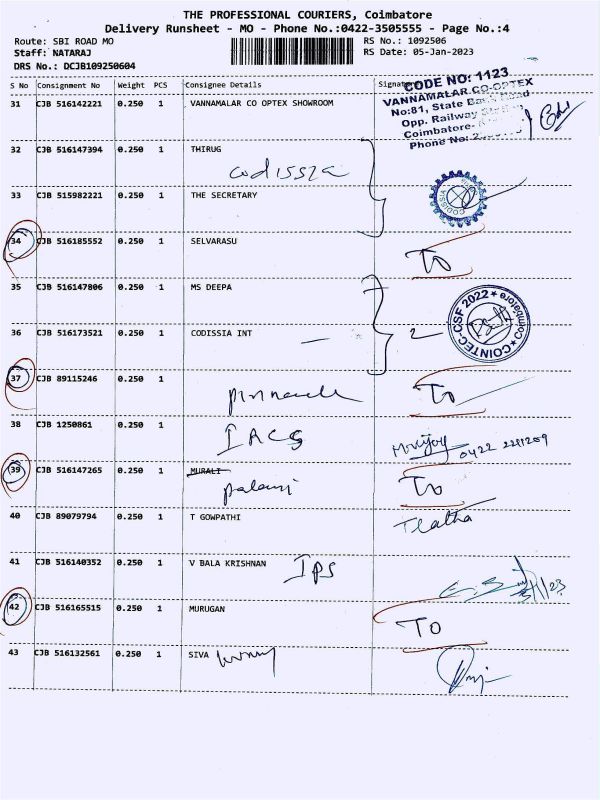 THE PROFESSIONAL COURIERS, Coimbatore
Delivery Runsheet - MO - Phone No.:0422-3505555 - Page No.:4
Route: SBI ROAD MO
RS No.: 1092506
Staff: NATARAJ
RS Date: 05-Jan-2023
DRS No.: DCJB109250604
S No Consignment No Weight PCS Consignee Details Signature
CODE NO: 1123
31 CJB 516142221 0.250 1 VANNAMALAR CO OPTEX SHOWROOM
VANNAMALAR CO-OPTEX
No:81, State Bank Road
Opp. Railway
Coimbatore-
Phone No:
32 CJB 516147394 0.250 1 THIRUG
codissia
33 CJB 515982221 0.250 1 THE SECRETARY
CODISSIA
34 CJB 516185552 0.250 1 SELVARASU
To
35 CJB 516147806 0.250 1 MS DEEPA
36 CJB 516173521 0.250 1 CODISSIA INT
2
COINTEC-CSF 2022 ★ Coimbatore ★
37 CJB 89115246 0.250 1
pinnacle To
38 CJB 1250861 0.250 1
IACS 0422
39 CJB 516147265 0.250 1 MURALI
palani To
40 CJB 89079794 0.250 1 T GOWPATHI
Tlatha
41 CJB 516140352 0.250 1 V BALA KRISHNAN IPS
42 CJB 516165515 0.250 1 MURUGAN
To
43 CJB 516132561 0.250 1 SIVA